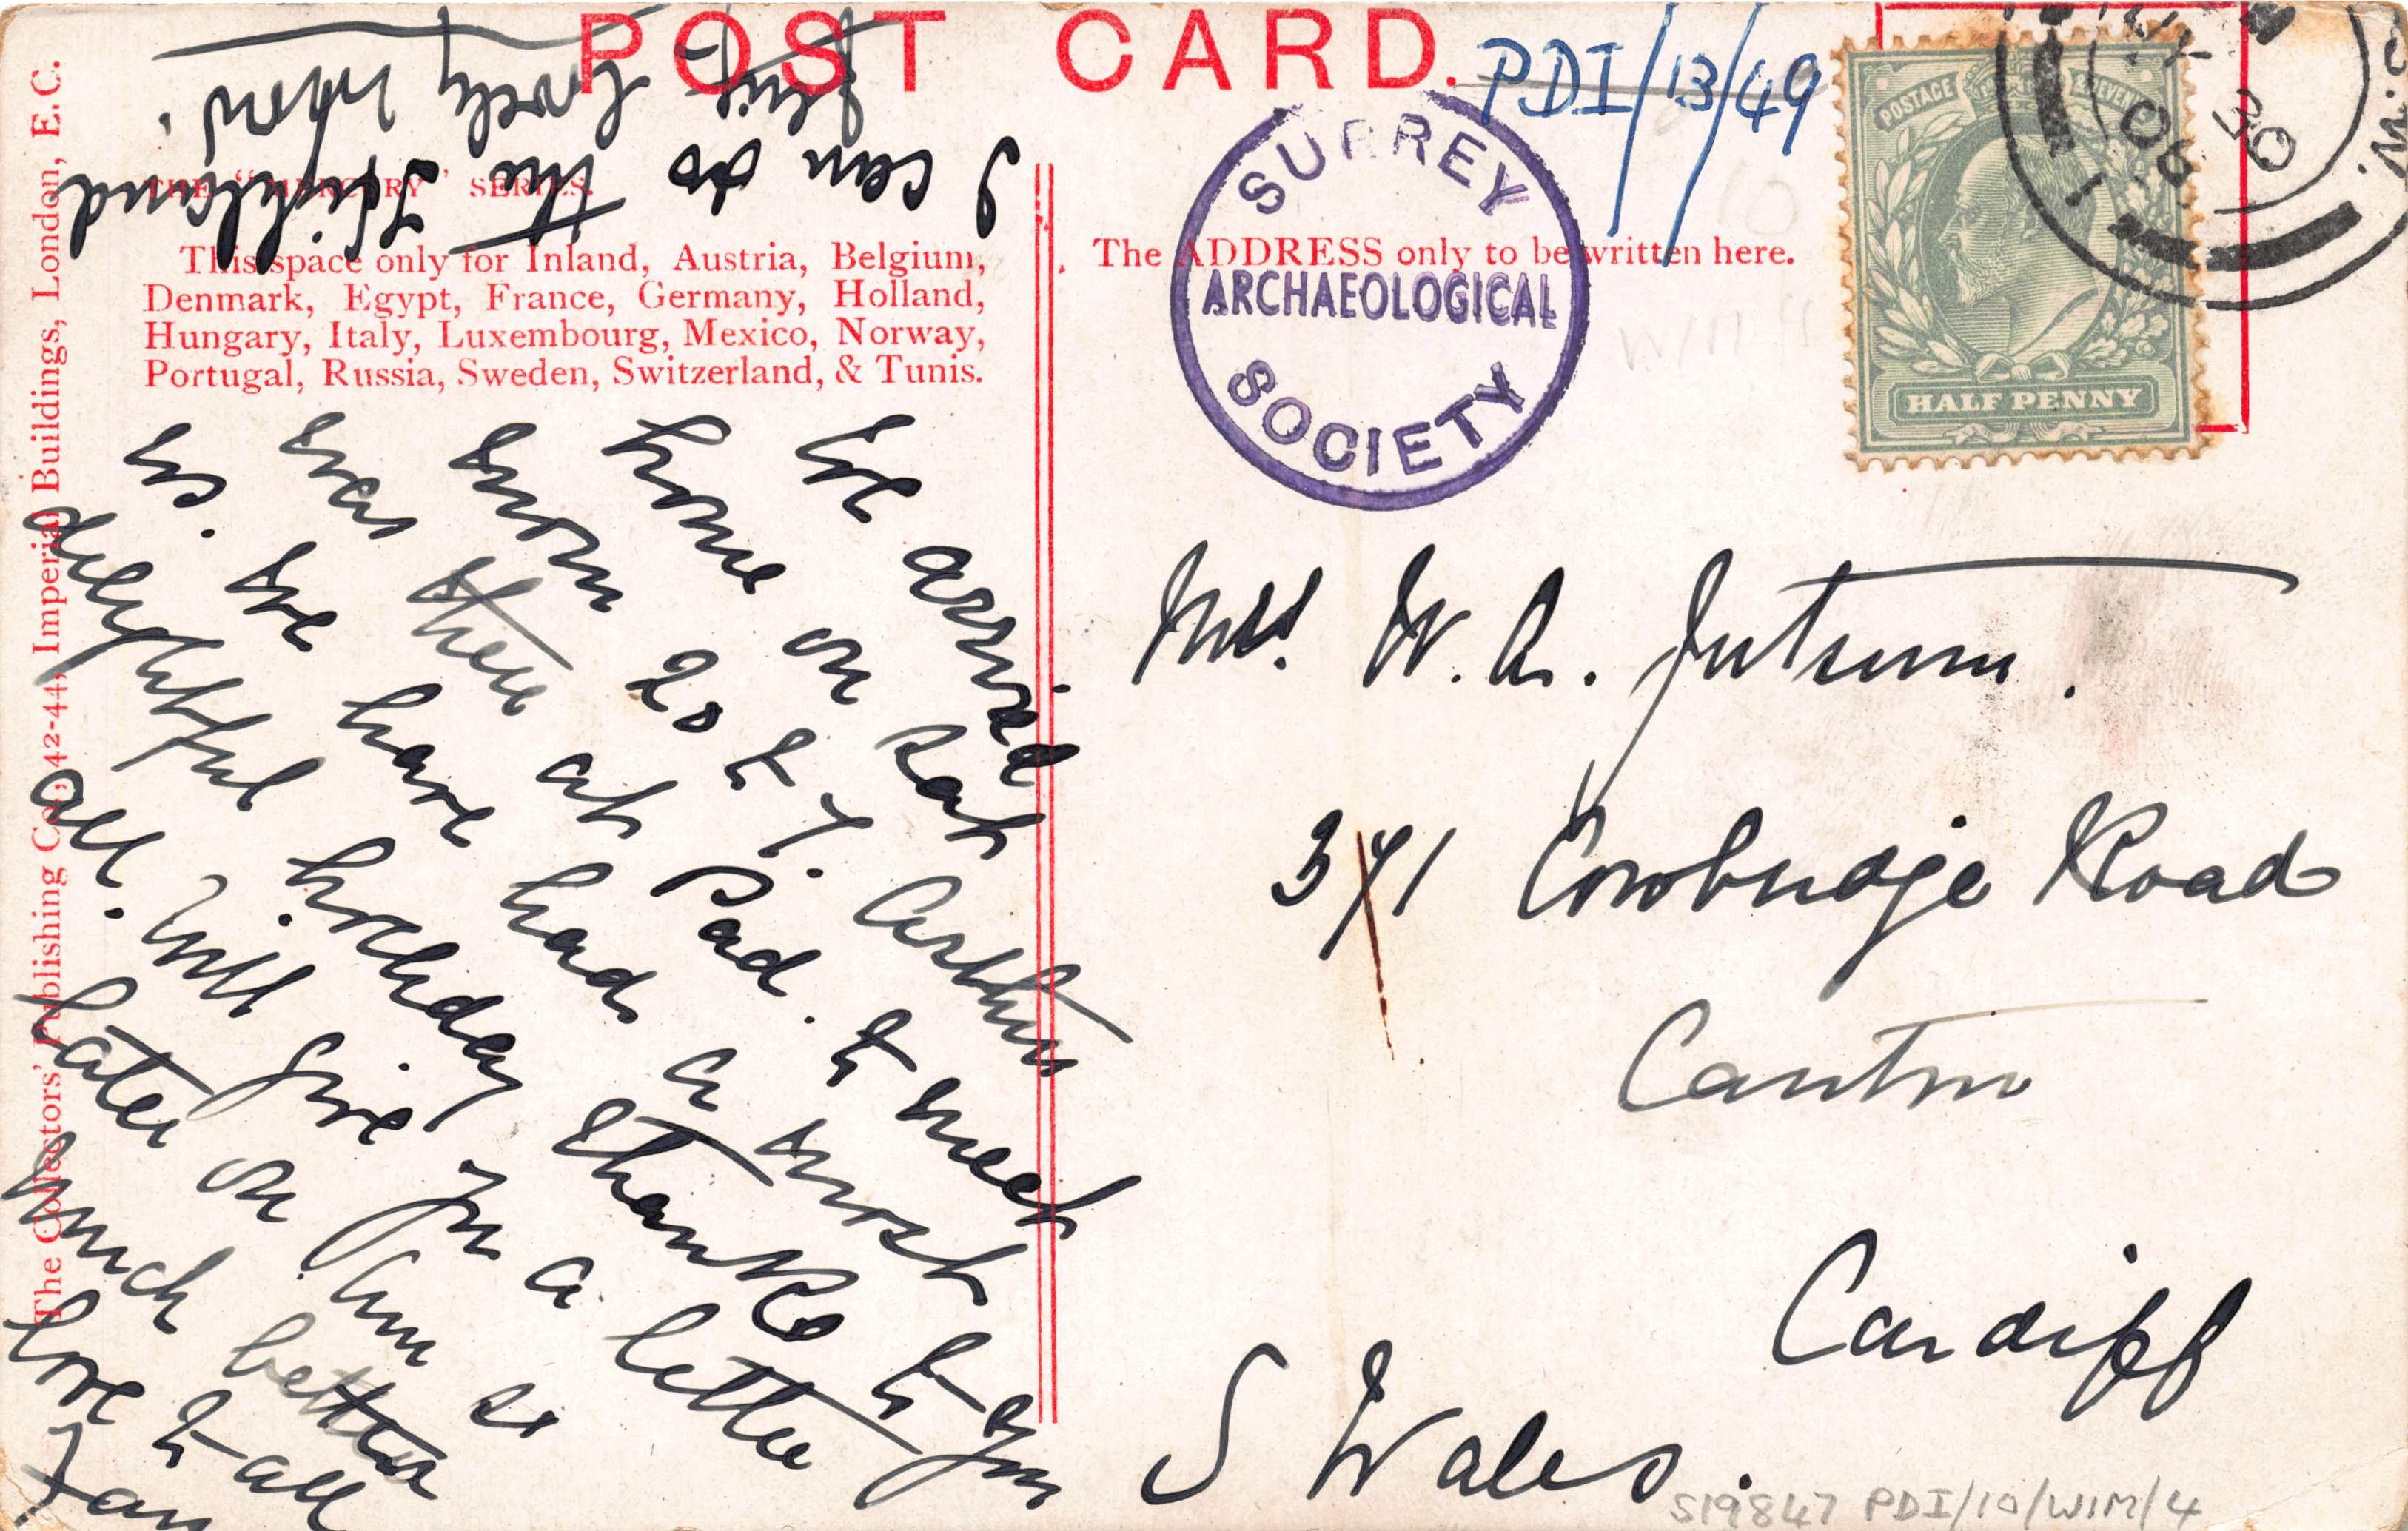 POST CARD.
PDI/13/49
THE "MERCURY" SERIES.
This space only for Inland, Austria, Belgium,
Denmark, Egypt, France, Germany, Holland,
Hungary, Italy, Luxembourg, Mexico, Norway,
Portugal, Russia, Sweden, Switzerland, & Tunis.
The ADDRESS only to be written here.
The Collectors' Publishing Co., 42-44, Imperial Buildings, London, E.C.
SURREY
ARCHAEOLOGICAL
SOCIETY
POSTAGE & REVENUE
HALF PENNY
We arrived
home on Sat
20 to 7. Arthur
was there at Pad. to meet
us. We have had a most
delightful holiday thanks to you
all. Will give you a letter
later on. Am so
much better
love to all
Fan
I can do the Highland
fling lovely now.
Mrs. W. A. Jutsum.
371 Cowbridge Road
Canton
Cardiff
S Wales.
S19847 PDI/10/WIM/4